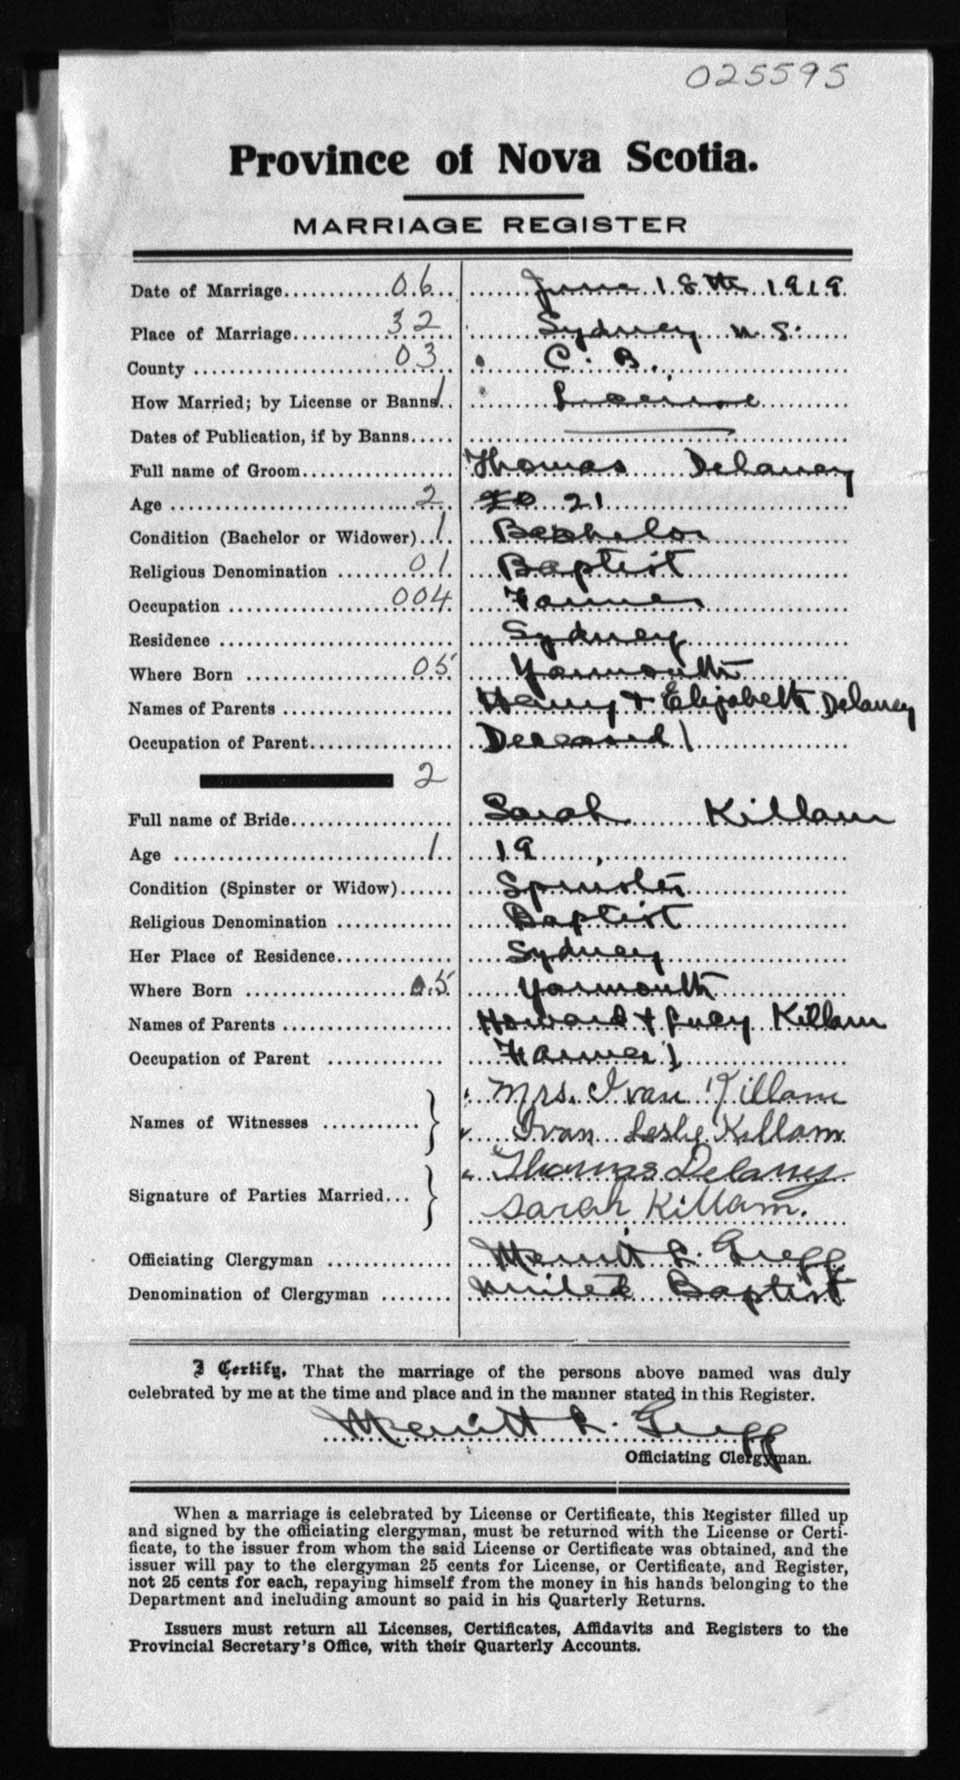 025595
Province of Nova Scotia.
MARRIAGE REGISTER
Date of Marriage 06 June 18th 1919
Place of Marriage 32 Sydney N.S.
County 03 C.B.
How Married; by License or Banns 1 License
Dates of Publication, if by Banns
Full name of Groom Thomas Delaney
Age 2 21
Condition (Bachelor or Widower) 1 Bachelor
Religious Denomination 01 Baptist
Occupation 004 Farmer
Residence Sydney
Where Born 05 Yarmouth
Names of Parents Henry + Elizabeth Delaney
Occupation of Parent Deceased 1
2
Full name of Bride Sarah Killam
Age 1 19
Condition (Spinster or Widow) Spinster
Religious Denomination Baptist
Her Place of Residence Sydney
Where Born 05 Yarmouth
Names of Parents Howard + Lucy Killam
Occupation of Parent Farmer 1
Names of Witnesses Mrs. Ivan Killam
Ivan Leslie Killam
Signature of Parties Married Thomas Delaney
Sarah Killam.
Officiating Clergyman Merritt L. Gregg
Denomination of Clergyman United Baptist
I Certify, That the marriage of the persons above named was duly
celebrated by me at the time and place and in the manner stated in this Register.
Merritt L. Gregg
Officiating Clergyman.
When a marriage is celebrated by License or Certificate, this Register filled up
and signed by the officiating clergyman, must be returned with the License or Certi-
ficate, to the issuer from whom the said License or Certificate was obtained, and the
issuer will pay to the clergyman 25 cents for License, or Certificate, and Register,
not 25 cents for each, repaying himself from the money in his hands belonging to the
Department and including amount so paid in his Quarterly Returns.
Issuers must return all Licenses, Certificates, Affidavits and Registers to the
Provincial Secretary's Office, with their Quarterly Accounts.